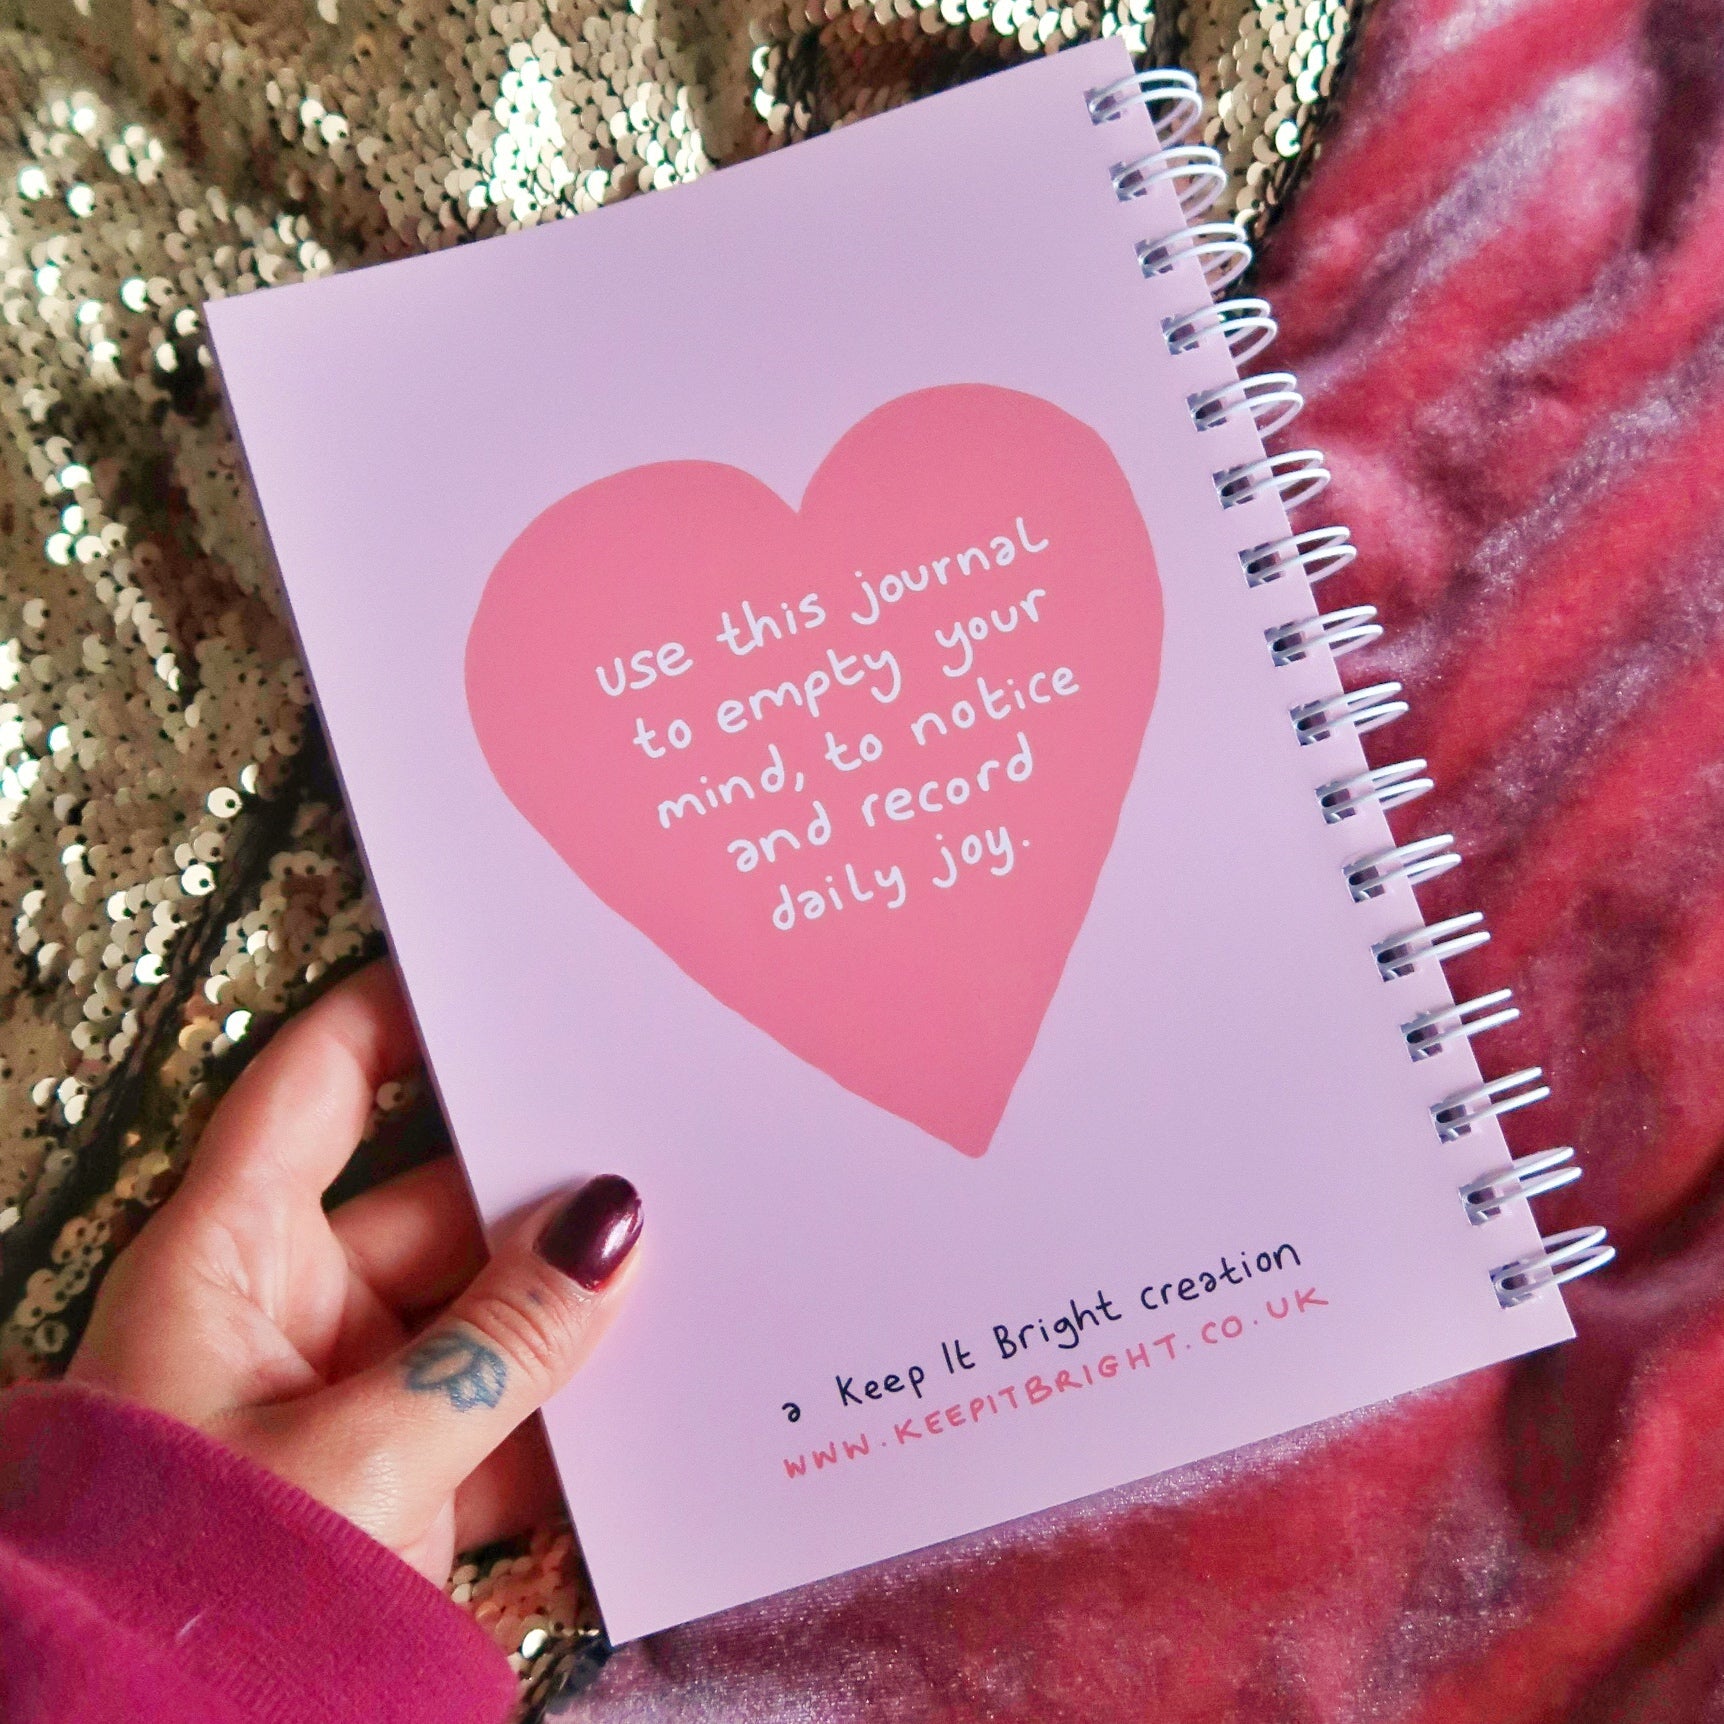 use this journal
to empty your
mind, to notice
and record
daily joy.
a Keep It Bright creation
WWW.KEEPITBRIGHT.CO.UK